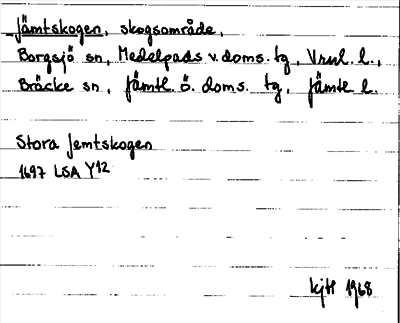 Jämtskogen, skogsområde,
Borgsjö sn, Medelpads v. doms. tg, Vrnl. l.,
Bräcke sn, Jämtl. ö. doms. tg, Jämtl l.
Stora Jemtskogen
1697 LSA Y12
kjH 1968